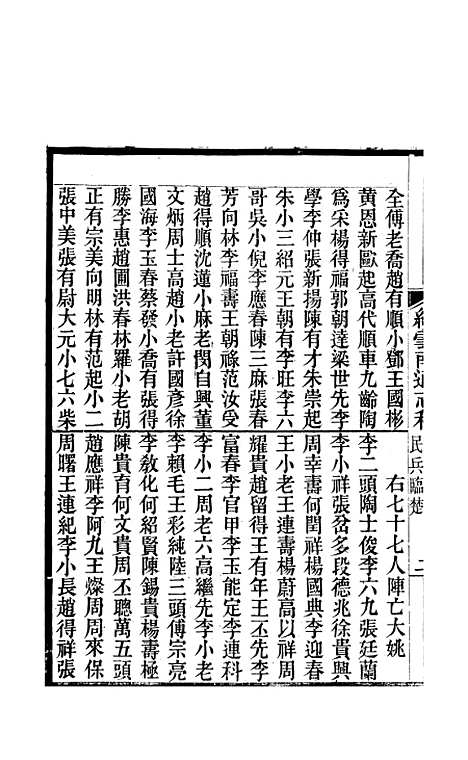 全傅老喬趙有順小鄧王國彬
黃恩新歐起高代順車九齡陶
為宋楊得福郭朝達梁世先李
學李仲張新揚陳有才朱崇起
朱小三紹元王朝有李旺李六
哥吳小倪李應春陳三麻張春
芳向林李福壽王朝祿范汝受
趙得順沈蓮小麻老閔自興董
文炳周士高趙小老許國彥徐
國海李玉春蔡發小喬有張得
勝李惠趙圃洪春林羅小老胡
正有宗美向明林有范起小二
張中美張有尉大元小七六柴
右七十七人陣亡大姚
李二頭陶士俊李六九張廷蘭
李小祥張岔多段德兆徐貴興
周幸壽何閏祥楊國典李迎春
王小老王連壽楊蔚高以祥周
耀貴趙留得王有年王丕先李
富春李官甲李玉能定李連科
李小二周老六高繼先李小老
李賴毛王彩純陸三頭傅宗亮
李敎化何紹賢陳錫貴楊壽極
陳貴育何文貴周丕聰萬五頭
趙應祥李阿九王燦周周來保
周曙王連紀李小長趙得祥張
續雲南通志稿 民兵臨楚 二